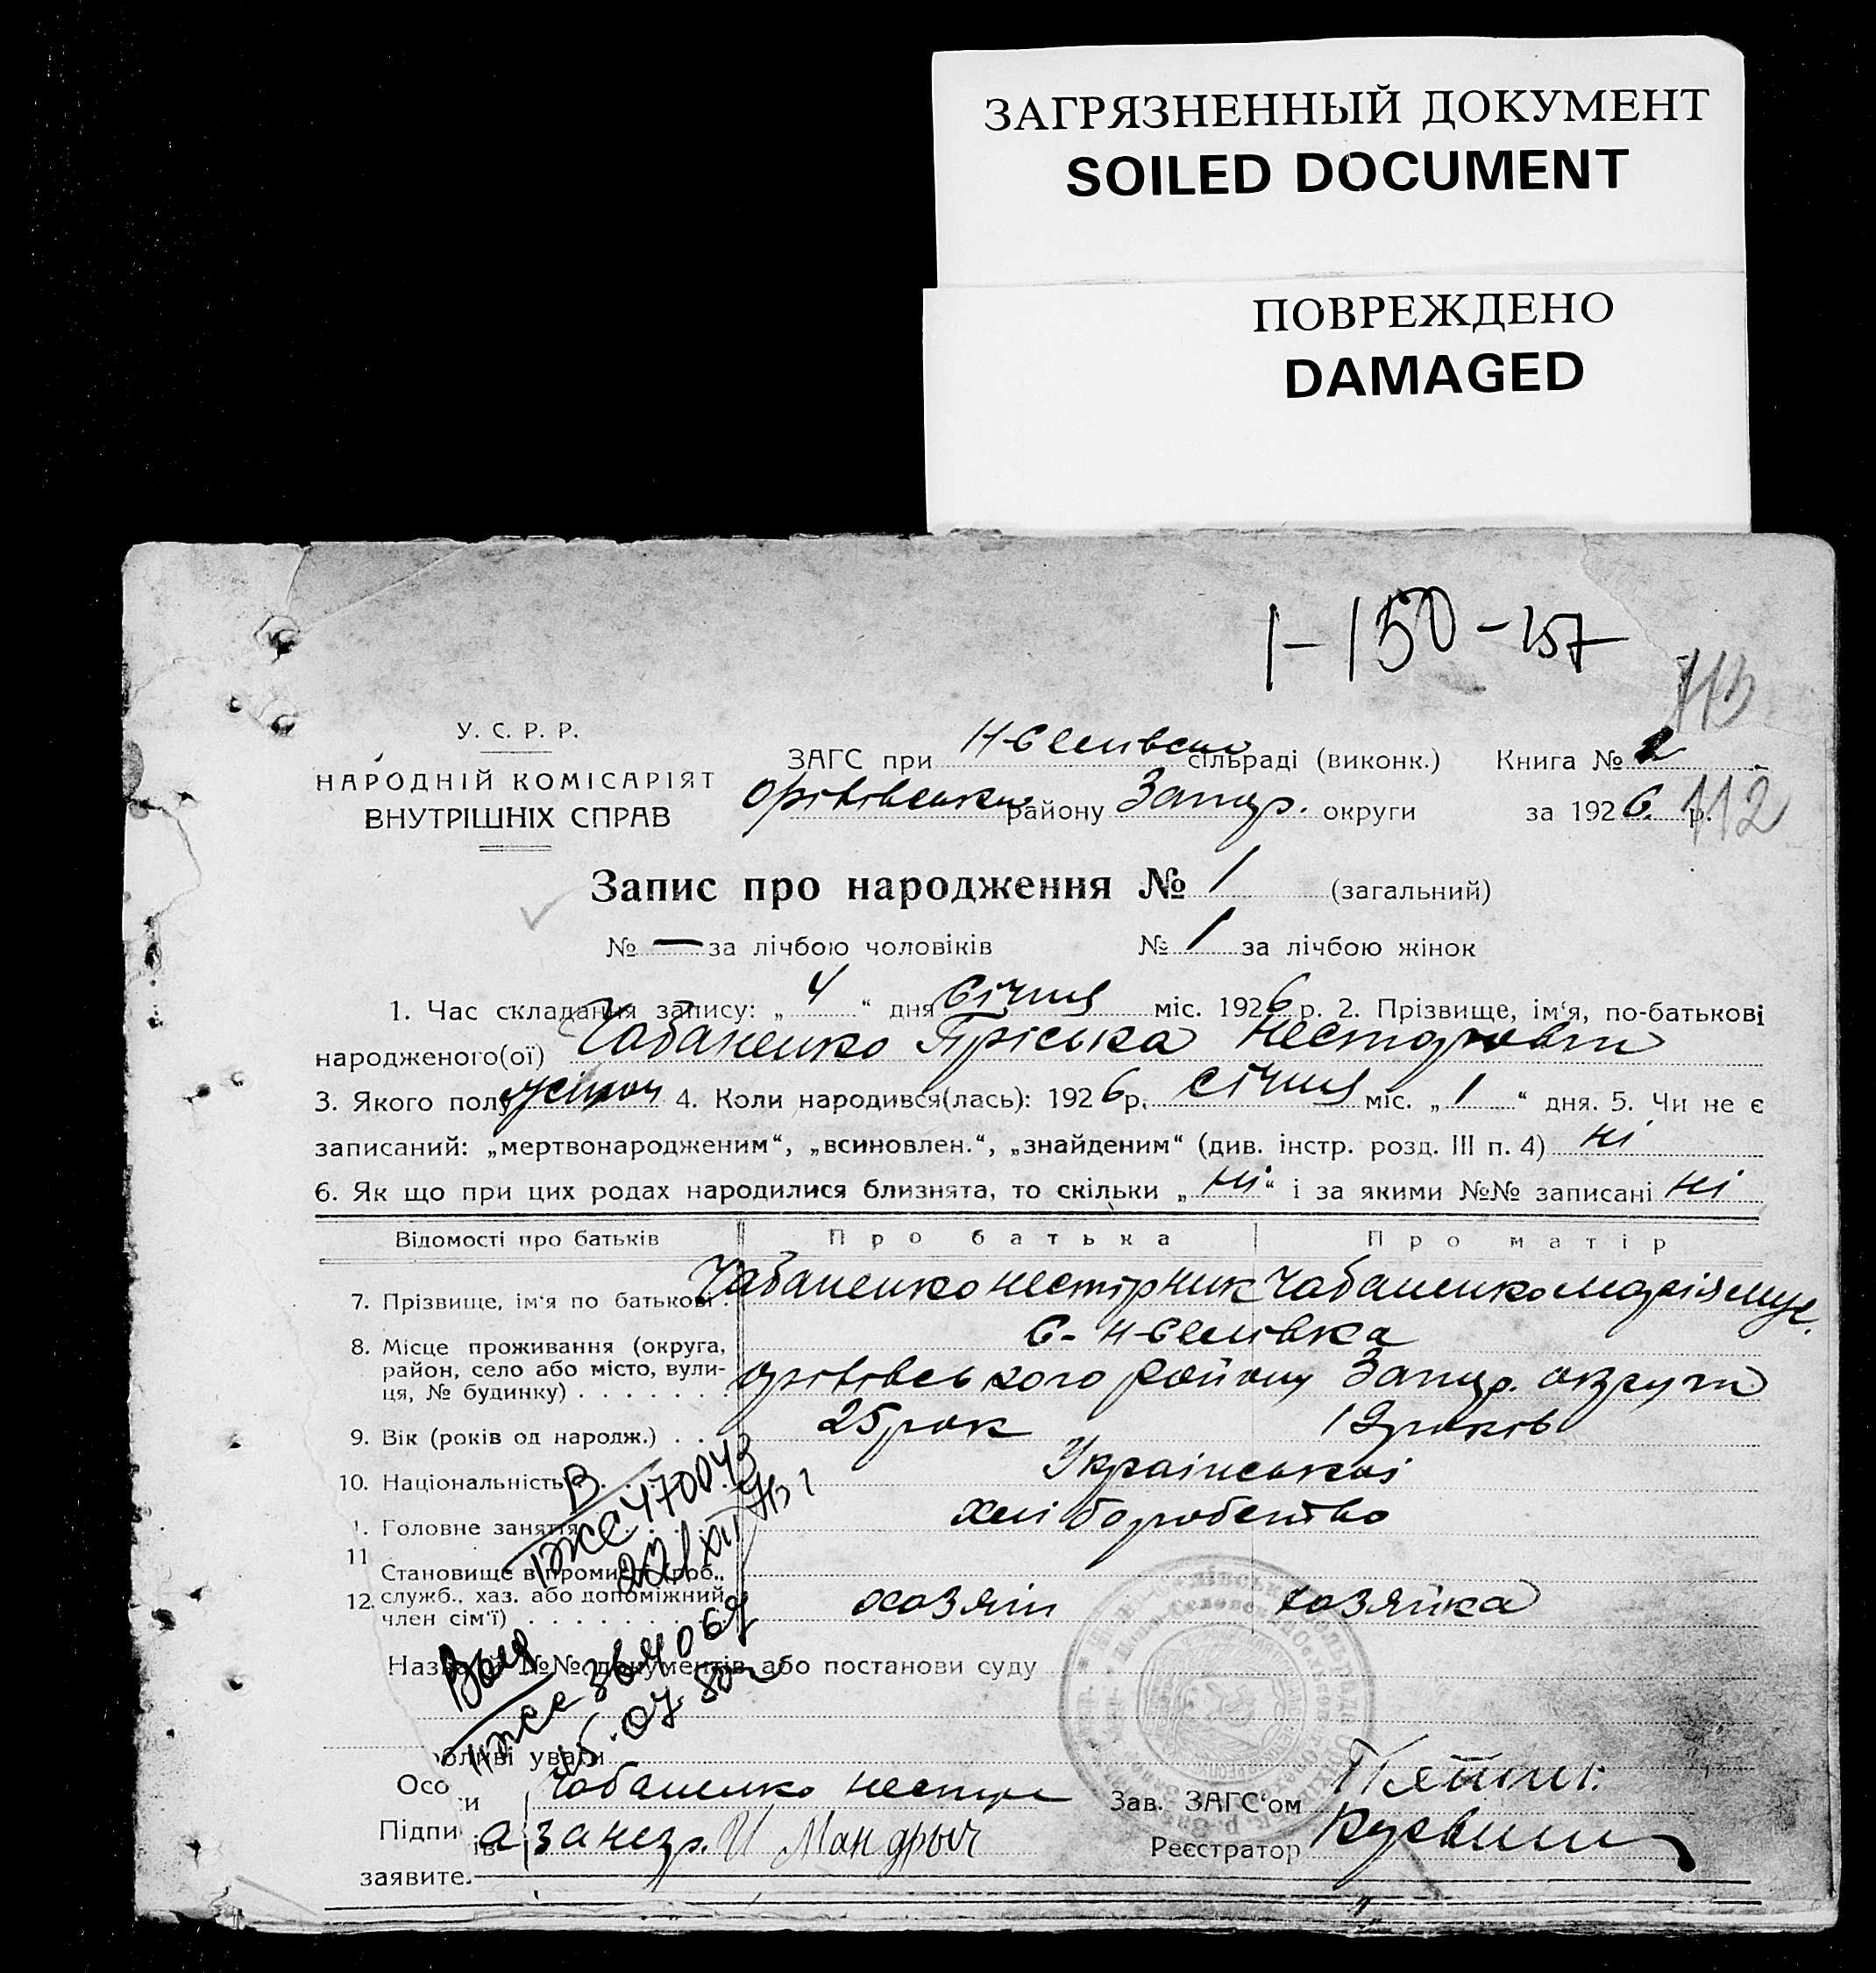 ЗАГРЯЗНЕННЫЙ ДОКУМЕНТ
SOILED DOCUMENT
ПОВРЕЖДЕНО
DAMAGED
1-150-157
113
У. С. Р. Р.
НАРОДНІЙ КОМІСАРІЯТ
ВНУТРІШНІХ СПРАВ
ЗАГС при сільраді (виконк.) Книга №
району Запор. округи за 1926 р.
112
Запис про народження № 1 (загальний)
№ — за лічбою чоловіків № 1 за лічбою жінок
1. Час складання запису: „ 4 “ дня Січня міс. 1926 р. 2. Прізвище, ім‘я, по-батькові
народженого(ої) Чабаненко Пріська Несторовни
3. Якого полу жіноч 4. Коли народився(лась): 1926 р. Січня міс. „ 1 “ дня. 5. Чи не є
записаний: „мертвонародженим“, „всиновлен.“, „знайденим“ (див. інстр. розд. III п. 4) ні
6. Як що при цих родах народилися близнята, то скільки „ ні “ і за якими №№ записані ні
Відомості про батьків Про батька Про матір
7. Прізвище, ім‘я по батькові . Чабаненко Нестір Чабаненко Марія
8. Місце проживання (округа, С.
район, село або місто, вули-
ця, № будинку) . . . . . . району Запор. округи
9. Вік (років од народж.) . . 25 рок 19 років
10. Національність Українські
11. Головне заняття хліборобство
12. Становище в промисл. (роб.,
служб., хаз. або допоміжний
член сім‘ї) . . . . . . хозяїн хозяйка
Назва й №№ документів або постанови суду
Особливі уваги
Підписи Чабаненко Нестор Зав. ЗАГС‘ом
заявителів а за негр. И Мандрыч Реєстратор